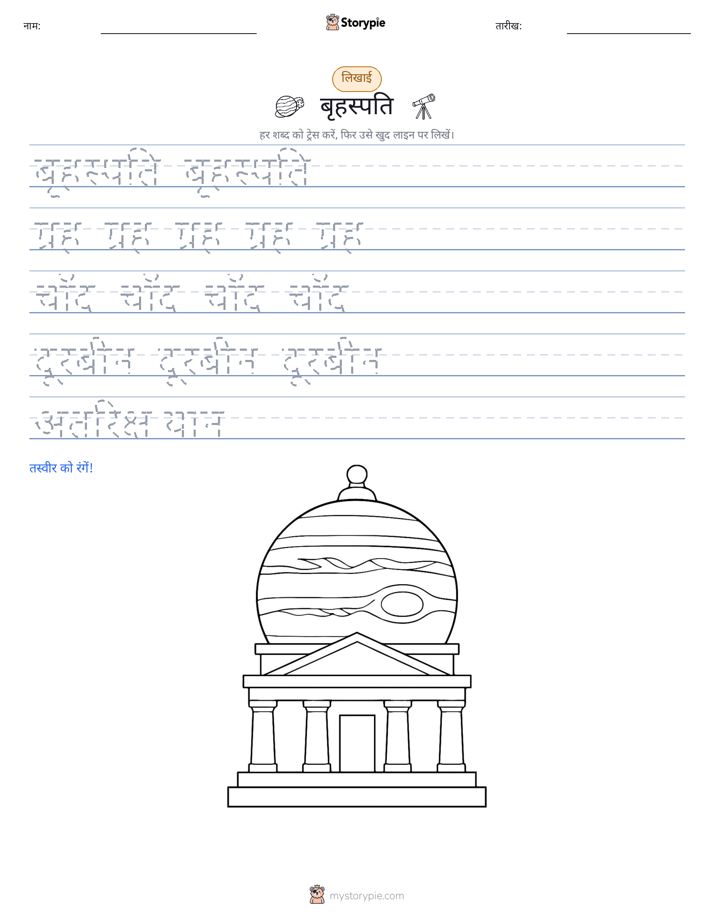 नाम: Storypie तारीख:
लिखाई
बृहस्पति
हर शब्द को ट्रेस करें, फिर उसे खुद लाइन पर लिखें।
बृहस्पति बृहस्पति
ग्रह ग्रह ग्रह ग्रह ग्रह
चाँद चाँद चाँद चाँद
दूरबीन दूरबीन दूरबीन
अंतरिक्ष यान
तस्वीर को रंगें!
mystorypie.com